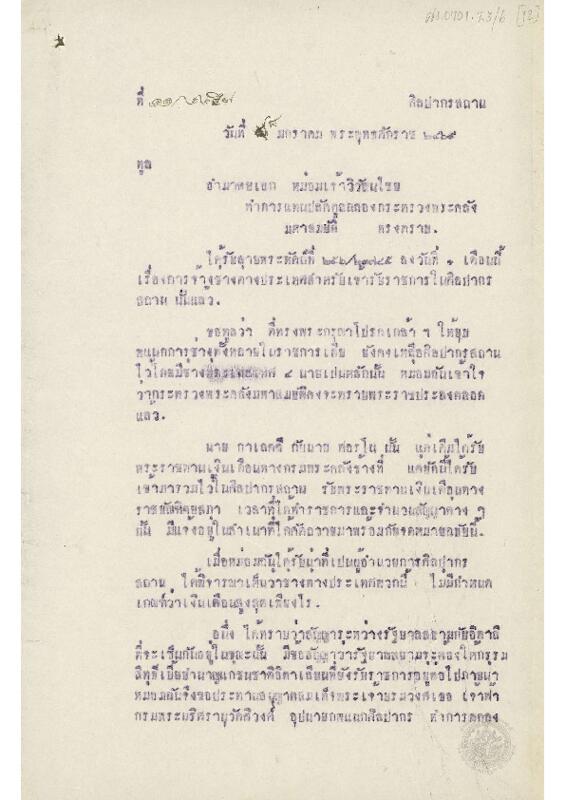 ศธ.0701.23/6 [12]
ที่ ๑๑/
ศิลปากรสถาน
วันที่ มกราคม พระพุทธศักราช ๒๔๖๙
ทูล
อำมาตยเอก หม่อมเจ้าวิวัฒนไชย
ทำการแทนปลัดทูลฉลองกระทรวงพระคลัง
มหาสมบัติ ทรงทราบ.
ได้รับลายพระหัตถ์ที่ ๒๕๖/๒๓๗๔๕ ลงวันที่ ๑ เดือนนี้
เรื่องการจ้างช่างต่างประเทศสำหรับเข้ารับราชการในศิลปากร
สถาน นั้นแล้ว.
ขอทูลว่า ที่ทรงพระกรุณาโปรดเกล้า ฯ ให้ยุบ
แผนกการช่างทั้งหลายในราชการเสีย ยังคงเหลือศิลปากรสถาน
ไว้โดยมีช่างต่างประเทศ ๔ นายเป็นหลักนั้น หม่อมฉันเข้าใจ
ว่ากระทรวงพระคลังมหาสมบัติคงจะทราบพระราชประสงค์ตลอด
แล้ว.
นาย กาเลตตี กับนาย ฟอร์โน นั้น แต่เดิมได้รับ
พระราชทานเงินเดือนทางกรมพระคลังข้างที่ แต่บัดนี้ได้รับ
เข้ามารวมไว้ในศิลปากรสถาน รับพระราชทานเงินเดือนทาง
ราชบัณฑิตยสภา เวลาที่ได้ทำราชการและจำนวนสัญญาต่าง ๆ
นั้น มีแจ้งอยู่ในสำเนาที่ได้คัดถวายมาพร้อมกับจดหมายฉบับนี้.
เมื่อหม่อมฉันได้รับน่าที่เป็นผู้อำนวยการศิลปากร
สถาน ได้พิจารณาเห็นว่าช่างต่างประเทศพวกนี้ ไม่มีกำหนด
เกณฑ์ว่าเงินเดือนสูงสุดเพียงไร.
อนึ่ง ได้ทราบว่าสัญญาระหว่างรัฐบาลสยามกับอิตาลี
ที่จะเซ็นกันอยู่ในขณะนั้น มีข้อสัญญาว่ารัฐบาลสยามจะต้องให้กรรม
สิทธิ์เบี้ยบำนาญแก่ชนชาติอิตาเลียนที่ยังรับราชการอยู่ต่อไปภายน่า
หม่อมฉันจึงขอประทานอนุญาตสมเด็จพระเจ้าบรมวงศ์เธอ เจ้าฟ้า
กรมพระนริศรานุวัดติวงศ์ อุปนายกแผนกศิลปากร ทำการตกลง